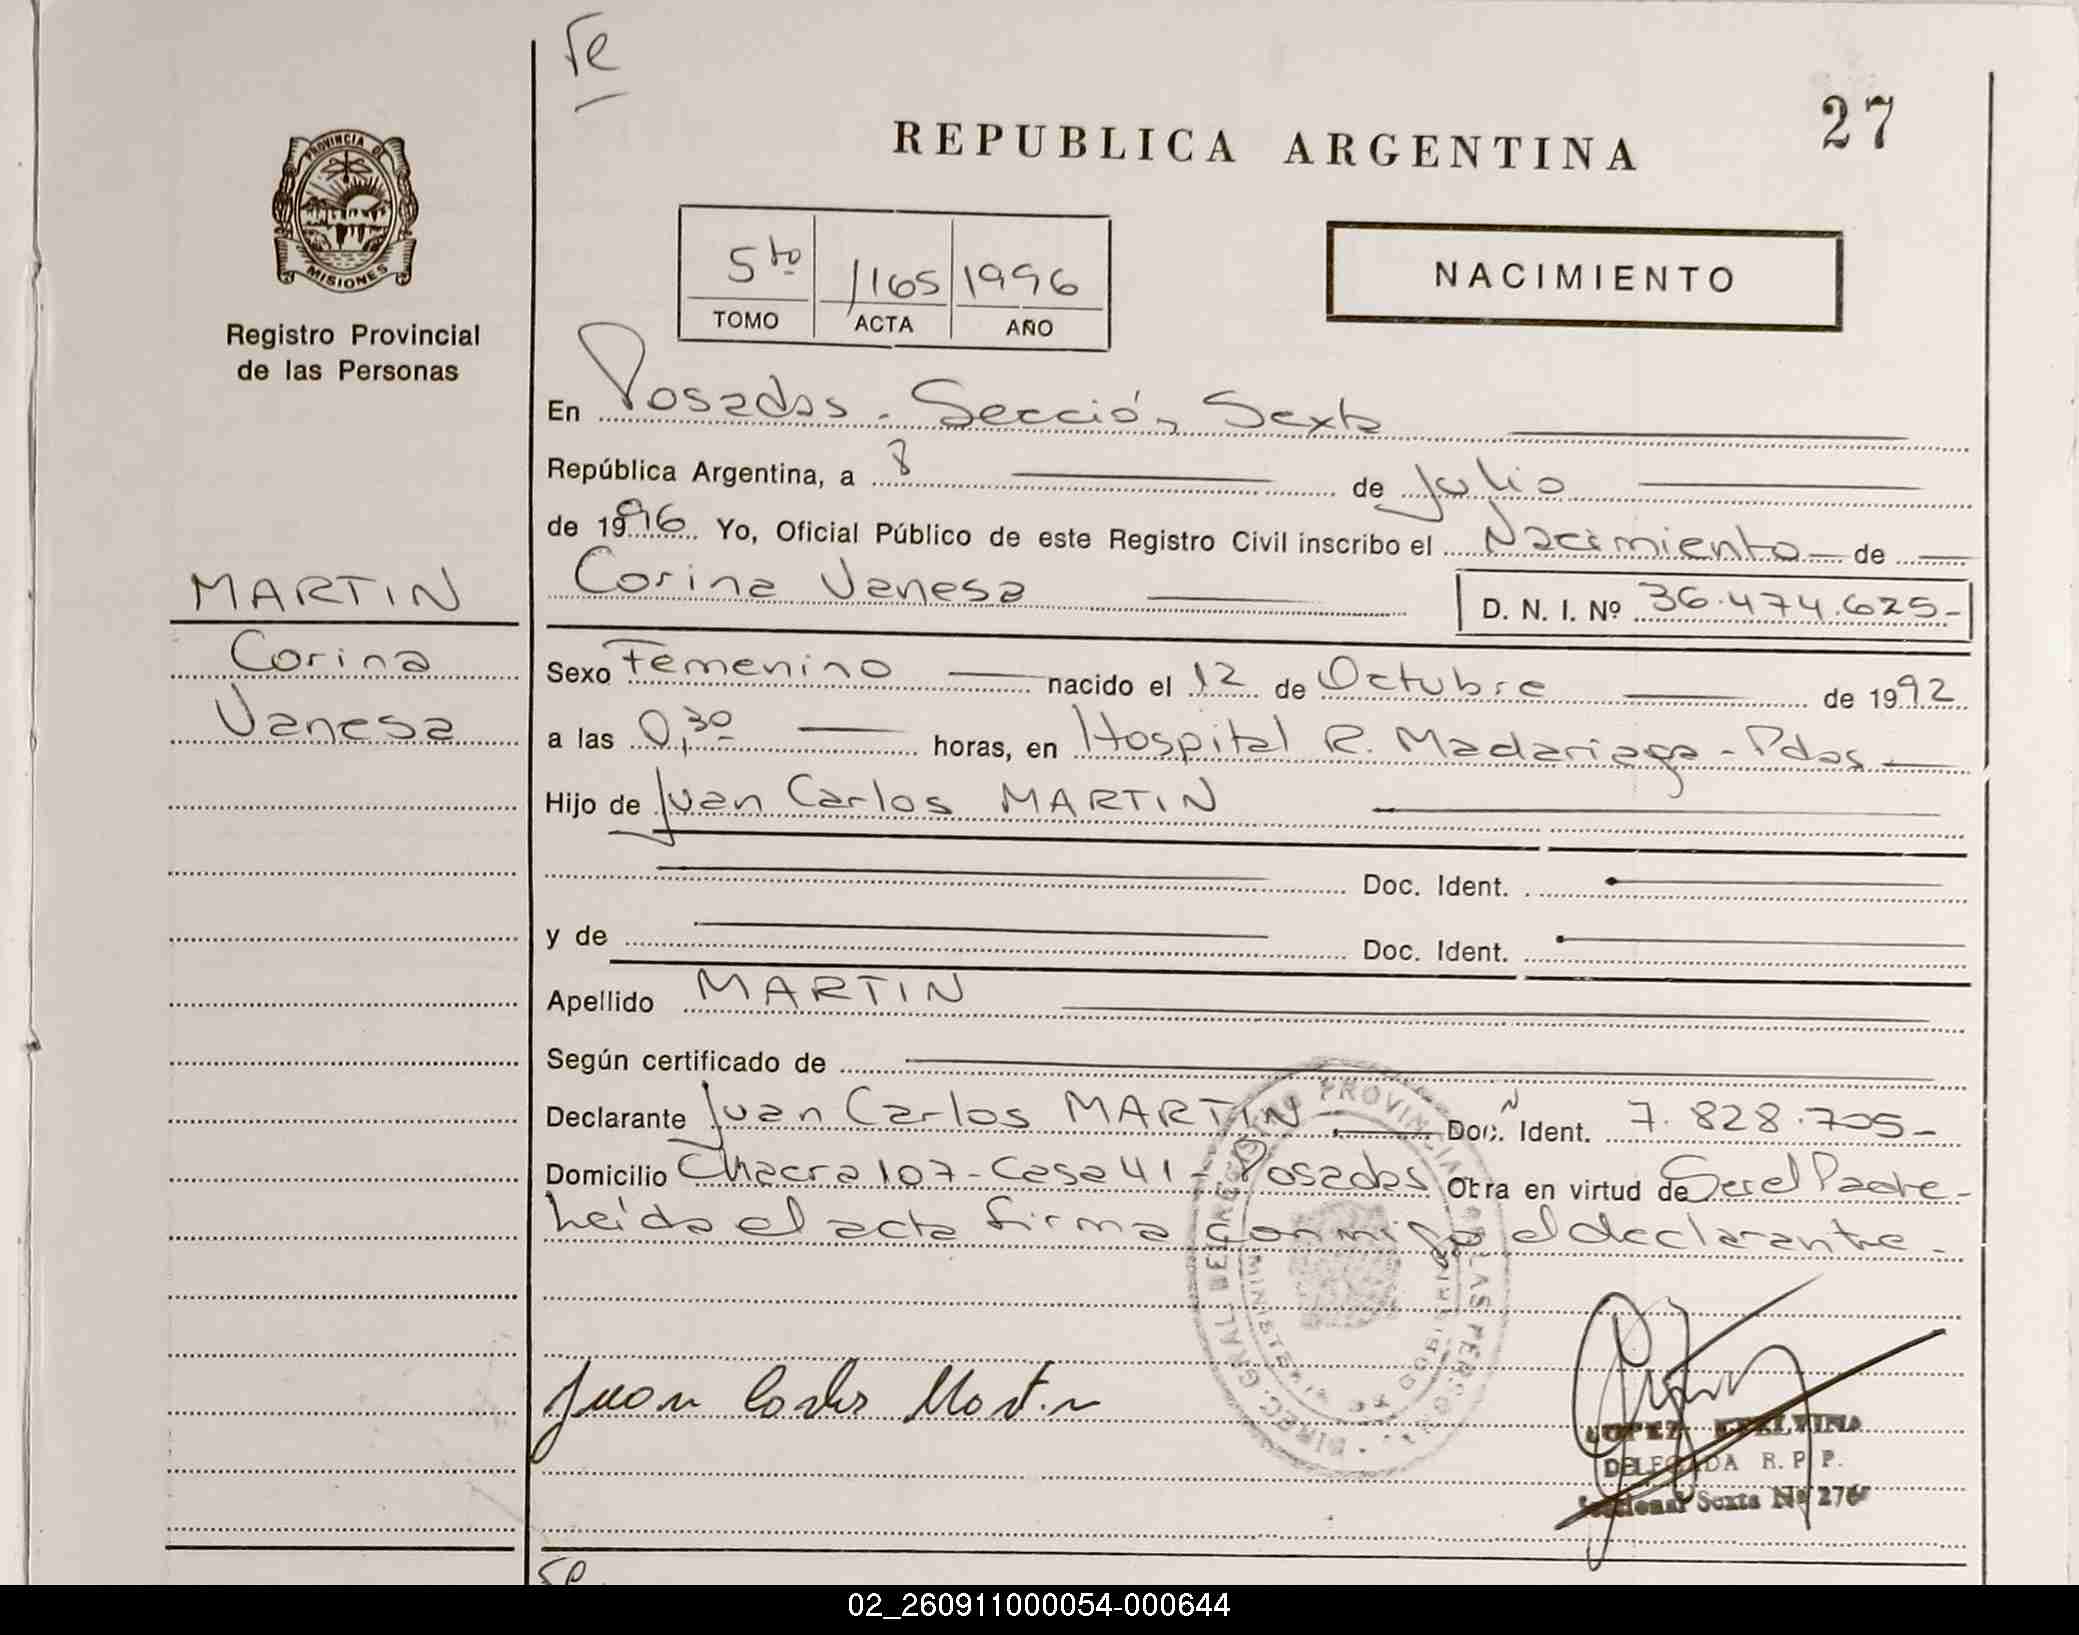 Fe
27
REPUBLICA ARGENTINA
PROVINCIA DE
MISIONES
Registro Provincial
de las Personas
5to 1165 1996
TOMO ACTA AÑO
NACIMIENTO
En Posadas - Sección Sexta
República Argentina, a 8 de Julio
de 1996 Yo, Oficial Público de este Registro Civil inscribo el Nacimiento de
Corina Vanesa D. N. I. Nº 36.474.625-
MARTIN
Corina
Vanesa
Sexo Femenino nacido el 12 de Octubre de 1992
a las 0,30 horas, en Hospital R. Madariaga - Pdas
Hijo de Juan Carlos MARTIN
Doc. Ident.
y de Doc. Ident.
Apellido MARTIN
Según certificado de
Declarante Juan Carlos MARTIN Doc. Ident. 7.828.705-
Domicilio Chacra 107 - Casa 41 - Posadas Otra en virtud de Ser el Padre -
Leída el acta firma conmigo el declarante -
DIREC. GRAL. DEL REGISTRO PROVINCIAL DE LAS PERSONAS
Juan Carlos Martin
LOPEZ
DELEGADA R. P. P.
Seccional Sexta Nº 276
02_260911000054-000644